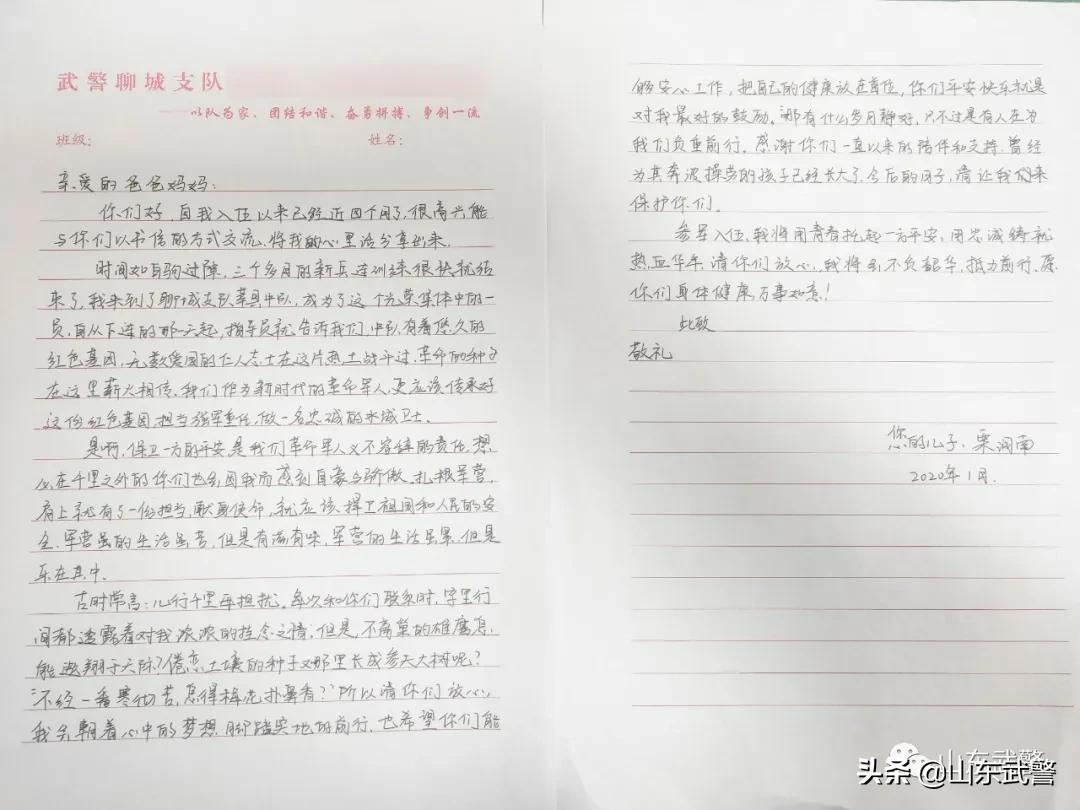 武警聊城支队
——以队为家、团结和谐、奋勇拼搏、争创一流
班级: 姓名:
亲爱的爸爸妈妈:
你们好,自我入伍以来已经近四个月了,很高兴能
与你们以书信的方式交流,将我的心里话分享出来。
时间如白驹过隙,三个多月的新兵连训练很快就结
束了,我来到了聊城支队莘县中队,成为了这个光荣集体中的一
员,自从下连的那一天起,指导员就告诉我们,中队有着悠久的
红色基因,无数爱国的仁人志士在这片热土战斗过,革命的种子
在这里薪火相传,我们作为新时代的革命军人,更应该传承好
这份红色基因,担当强军重任,做一名忠诚的水城卫士。
是啊,保卫一方的平安是我们革命军人义不容辞的责任,想
必在千里之外的你们也会因我而感到自豪与骄傲,扎根军营,
肩上就有了一份担当,献身使命,就应该捍卫祖国和人民的安
全,军营虽的生活虽苦,但是有滋有味,军营的生活虽累,但是
乐在其中。
古时常言:儿行千里母担忧。每次和你们联系时,字里行
间都透露着对我浓浓的挂念之情,但是,不离巢的雄鹰怎
能遨翔于天际?倦恋土壤的种子又那里长成参天大树呢?
“不经一番寒彻苦,怎得梅花扑鼻香?”所以请你们放心,
我会朝着心中的梦想,脚踏实地的前行,也希望你们能
够安心工作,把自己的健康放在首位,你们平安快乐就是
对我最好的鼓励。哪有什么岁月静好,只不过是有人在为
我们负重前行。感谢你们一直以来的陪伴和支持,曾经
为其奔波操劳的孩子已经长大了,今后的日子,请让我们来
保护你们。
参军入伍,我将用青春托起一方平安,用忠诚铸就
热血华年,请你们放心,我将会不负韶华,砥力前行,愿
你们身体健康万事如意!
此致
敬礼
您的儿子:栗润南
2020年1月.
山东武警
头条 @山东武警